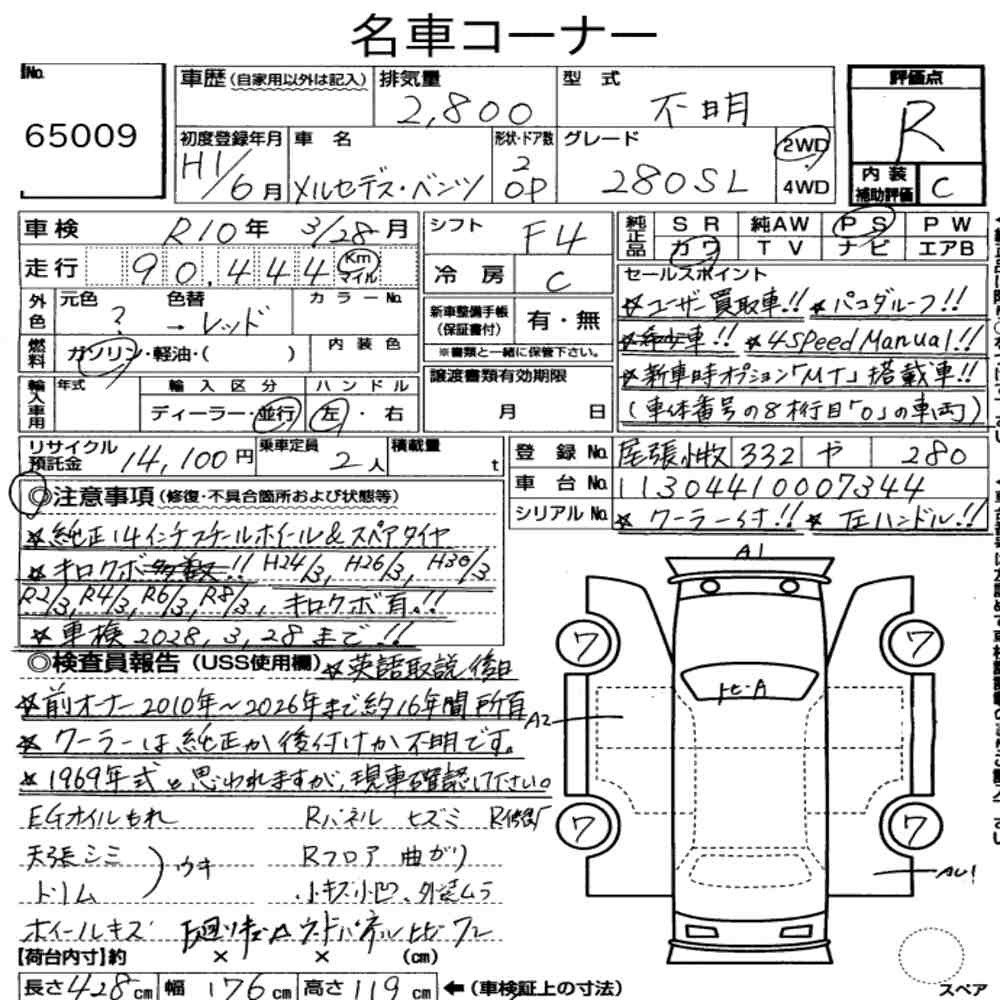 名車コーナー
No.
65009
車歴(自家用以外は記入)
排気量
2,800
型式
不明
評価点
R
初度登録年月
H1/6月
車名
メルセデス・ベンツ
形状・ドア数
2
OP
グレード
280SL
2WD
4WD
内装補助評価
C
車検 R10年 3/28月
走行 90,444 Km マイル
外色 元色 ? 色替 → レッド カラーNo.
燃料 ガソリン・軽油・( ) 内装色
輸入車用 年式 輸入区分 ハンドル
ディーラー・並行 左・右
シフト F4
冷房 C
新車整備手帳(保証書付) 有・無
※書類と一緒に保管下さい。
譲渡書類有効期限
月 日
純正品 SR 純AW PS PW
カワ TV ナビ エアB
セールスポイント
☆ユーザー買取車!! ☆パゴダルーフ!!
☆希少車!! ☆4SpeedManual!!
☆新車時オプション「MT」搭載車!!
(車体番号の8桁目「0」の車両)
リサイクル預託金 14,100円
乗車定員 2人
積載量 t
登録No. 尾張小牧 332 や 280
車台No. 11304410007344
シリアルNo. ☆クーラー付!! ☆左ハンドル!!
◎注意事項(修復・不具合箇所および状態等)
☆純正14インチスチールホイール&スペアタイヤ
☆キロクボ多数!! H24/3, H26/3, H30/3
R2/3, R4/3, R6/3, R8/3, キロクボ有!!
☆車検2028,3,28まで!!
◎検査員報告(USS使用欄)☆英語取説後日
☆前オーナー2010年~2026年まで約16年間所有
☆クーラーは純正か後付けか不明です。
☆1969年式と思われますが、現車確認して下さい。
EGオイルもれ Rパネル ヒズミ R修復
天張シミ
トリム ウキ
Rフロア 曲がり
小キズ小凹、外装ムラ
ホイールキズ
【荷台内寸】約 × × (cm)
長さ428cm 幅176cm 高さ119cm ←(車検証上の寸法)
A1
7
7
A2
7
7
AU1
スペア